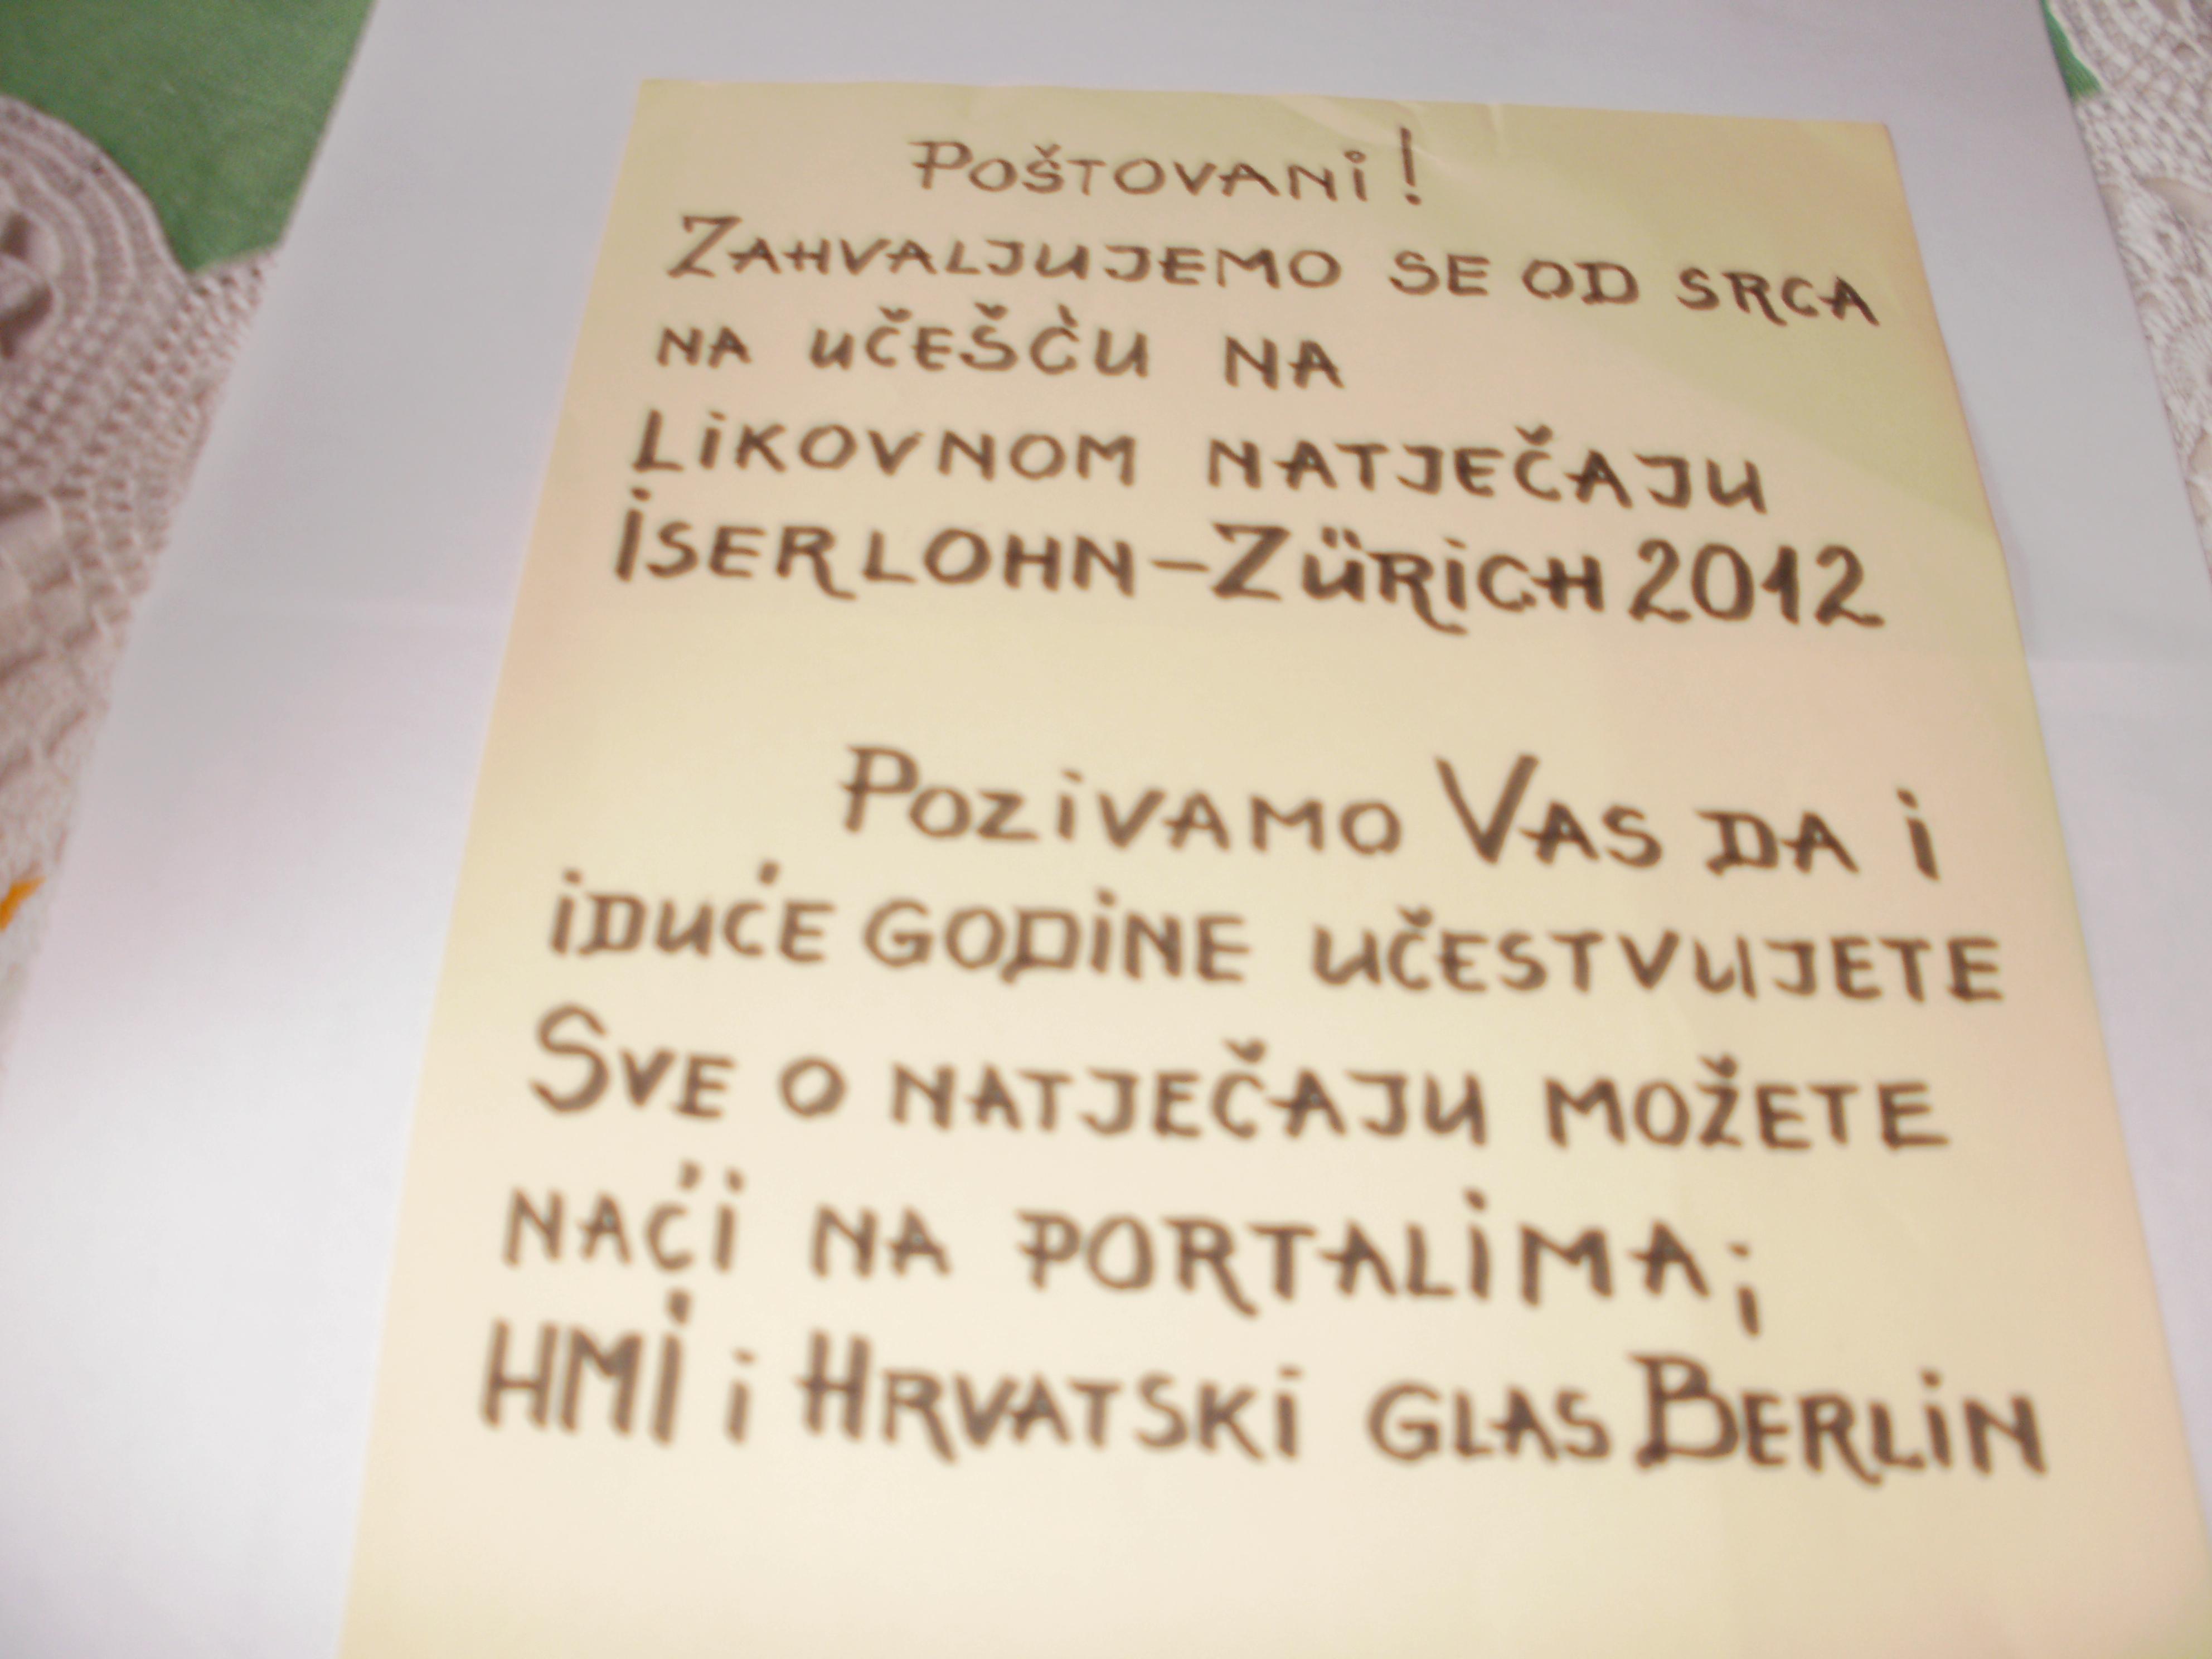 POŠTOVANI!
ZAHVALJUJEMO SE OD SRCA
NA UČEŠĆU NA
LIKOVNOM NATJEČAJU
ISERLOHN-ZÜRICH 2012
POZIVAMO VAS DA I
IDUĆE GODINE UČESTVUJETE
SVE O NATJEČAJU MOŽETE
NAĆI NA PORTALIMA;
HMI i HRVATSKI GLAS BERLIN